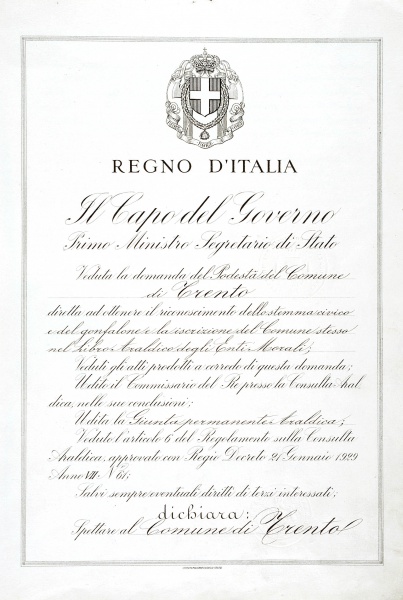 REGNO D'ITALIA
Il Capo del Governo
Primo Ministro Segretario di Stato
Veduta la domanda del Podestà del Comune
di Trento
diretta ad ottenere il riconoscimento dello stemma civico
e del gonfalone e la iscrizione del Comune stesso
nel Libro Araldico degli Enti Morali;
Veduti gli atti prodotti a corredo di questa domanda;
Udito il Commissario del Re presso la Consulta Aral-
dica, nelle sue conclusioni;
Udita la Giunta permanente Araldica;
Veduto l'articolo 6 del Regolamento sulla Consulta
Araldica, approvato con Regio Decreto 21 Gennaio 1929
Anno VII N 61;
Salvi sempre eventuali diritti di terzi interessati;
dichiara:
Spettare al Comune di Trento